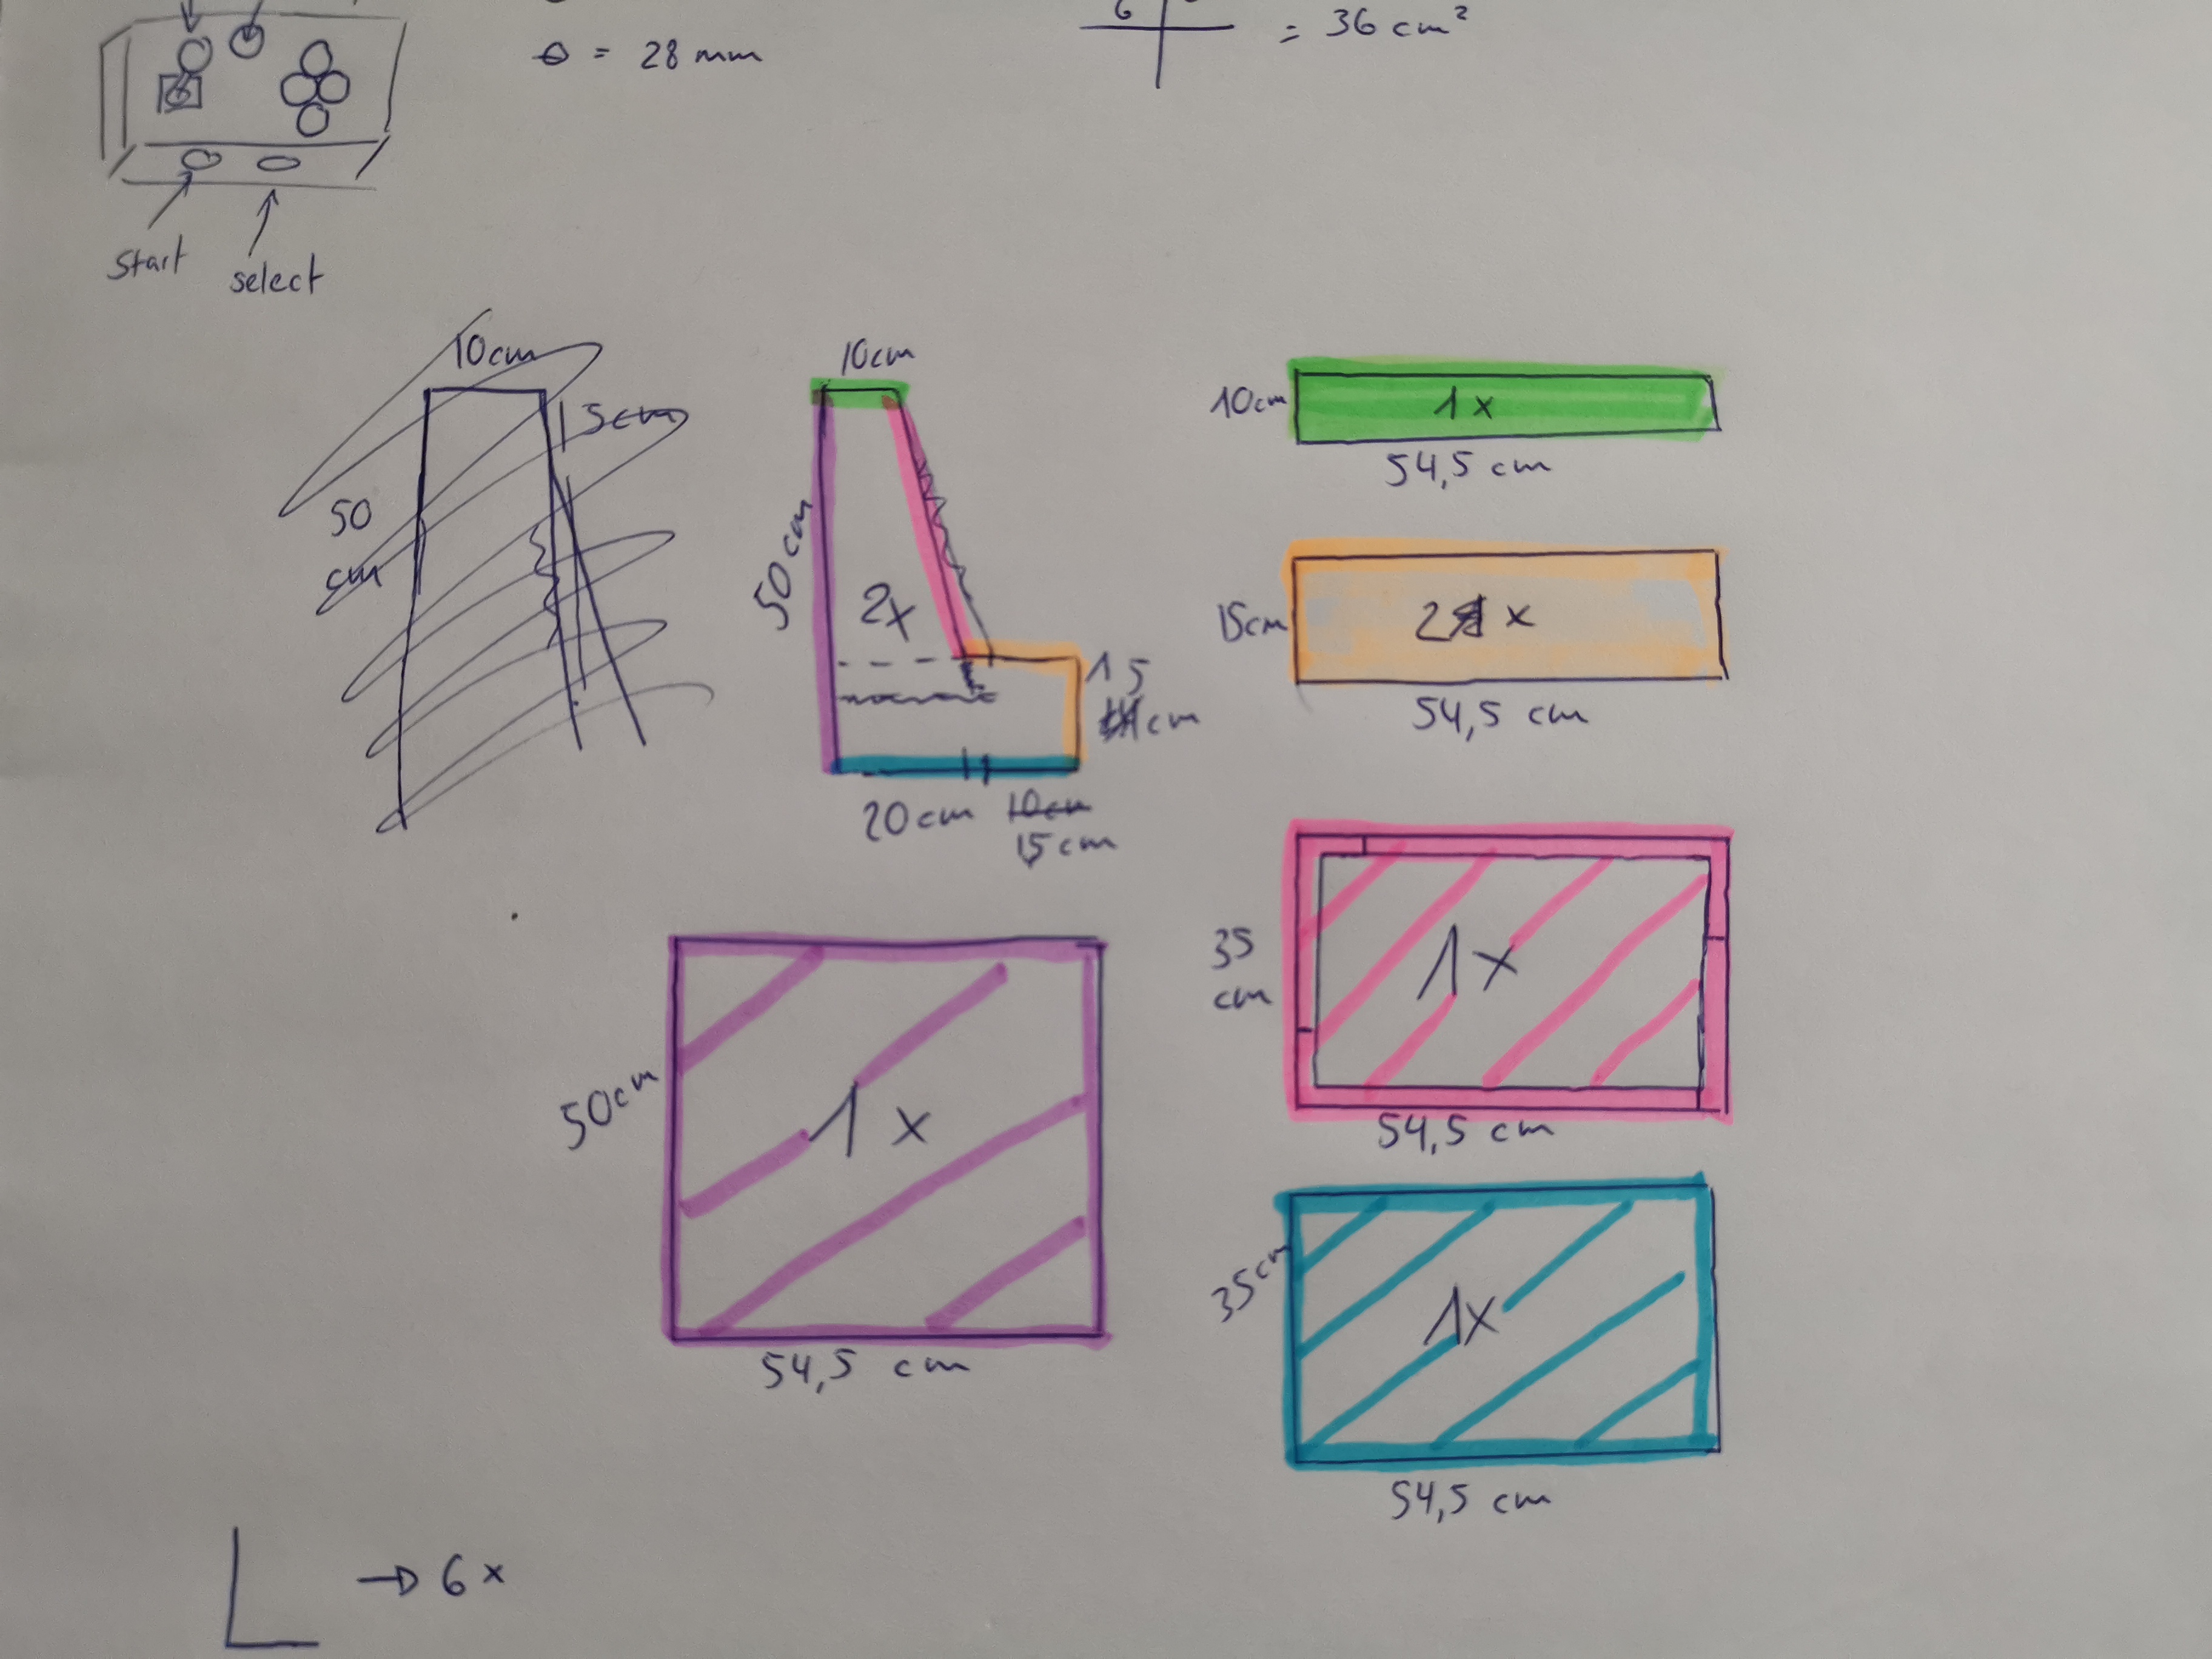 = 28 mm
6
= 36 cm²
start
select
10cm
5cm
50
cm
10cm
50cm
2x
15
cm
20cm 10cm
15cm
10cm
1x
54,5 cm
15cm
2 x
54,5 cm
35
cm
1x
54,5 cm
50cm
1 x
54,5 cm
35cm
1x
54,5 cm
6x